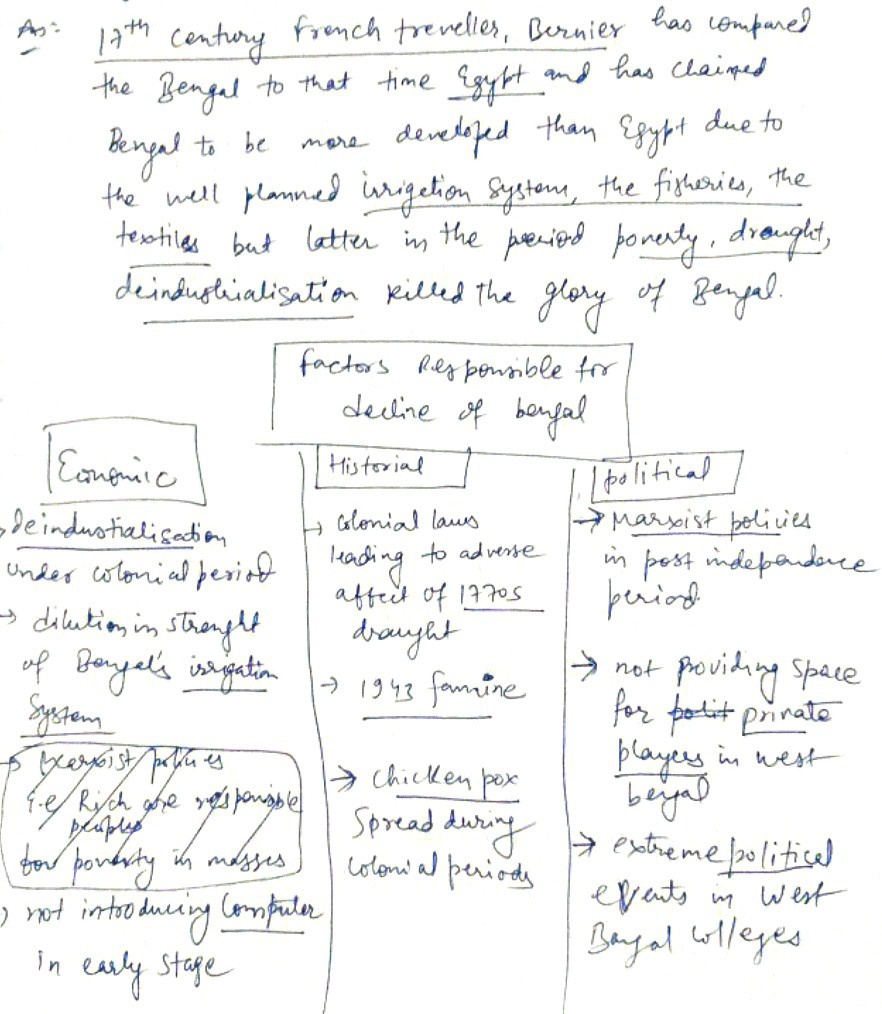 Ans:
17th century french treveller, Bernier has compared
the Bengal to that time Egypt and has claimed
Bengal to be more developed than Egypt due to
the well planned irrigetion system, the fisheries, the
textiles but latter in the period poverty, drought,
deindustrialisation killed the glory of Bengal.
factors Responsible for
decline of bengal
Economic
deindustialisation
under colonial period
→ dilution in strenght
of Bengal's irrigation
System
→ Marxist policies
i.e Rich are responsible
peoples
for poverty in masses
→ not introducing Computer
in early stage
Historial
→ colonial laws
leading to adverse
affect of 1770s
draught
→ 1943 famine
→ chicken pox
Spread during
colonial periods
political
→ Marxist policies
in post independence
period.
→ not providing space
for polit private
players in west
bengal
→ extreme political
events in West
Bangal colleges